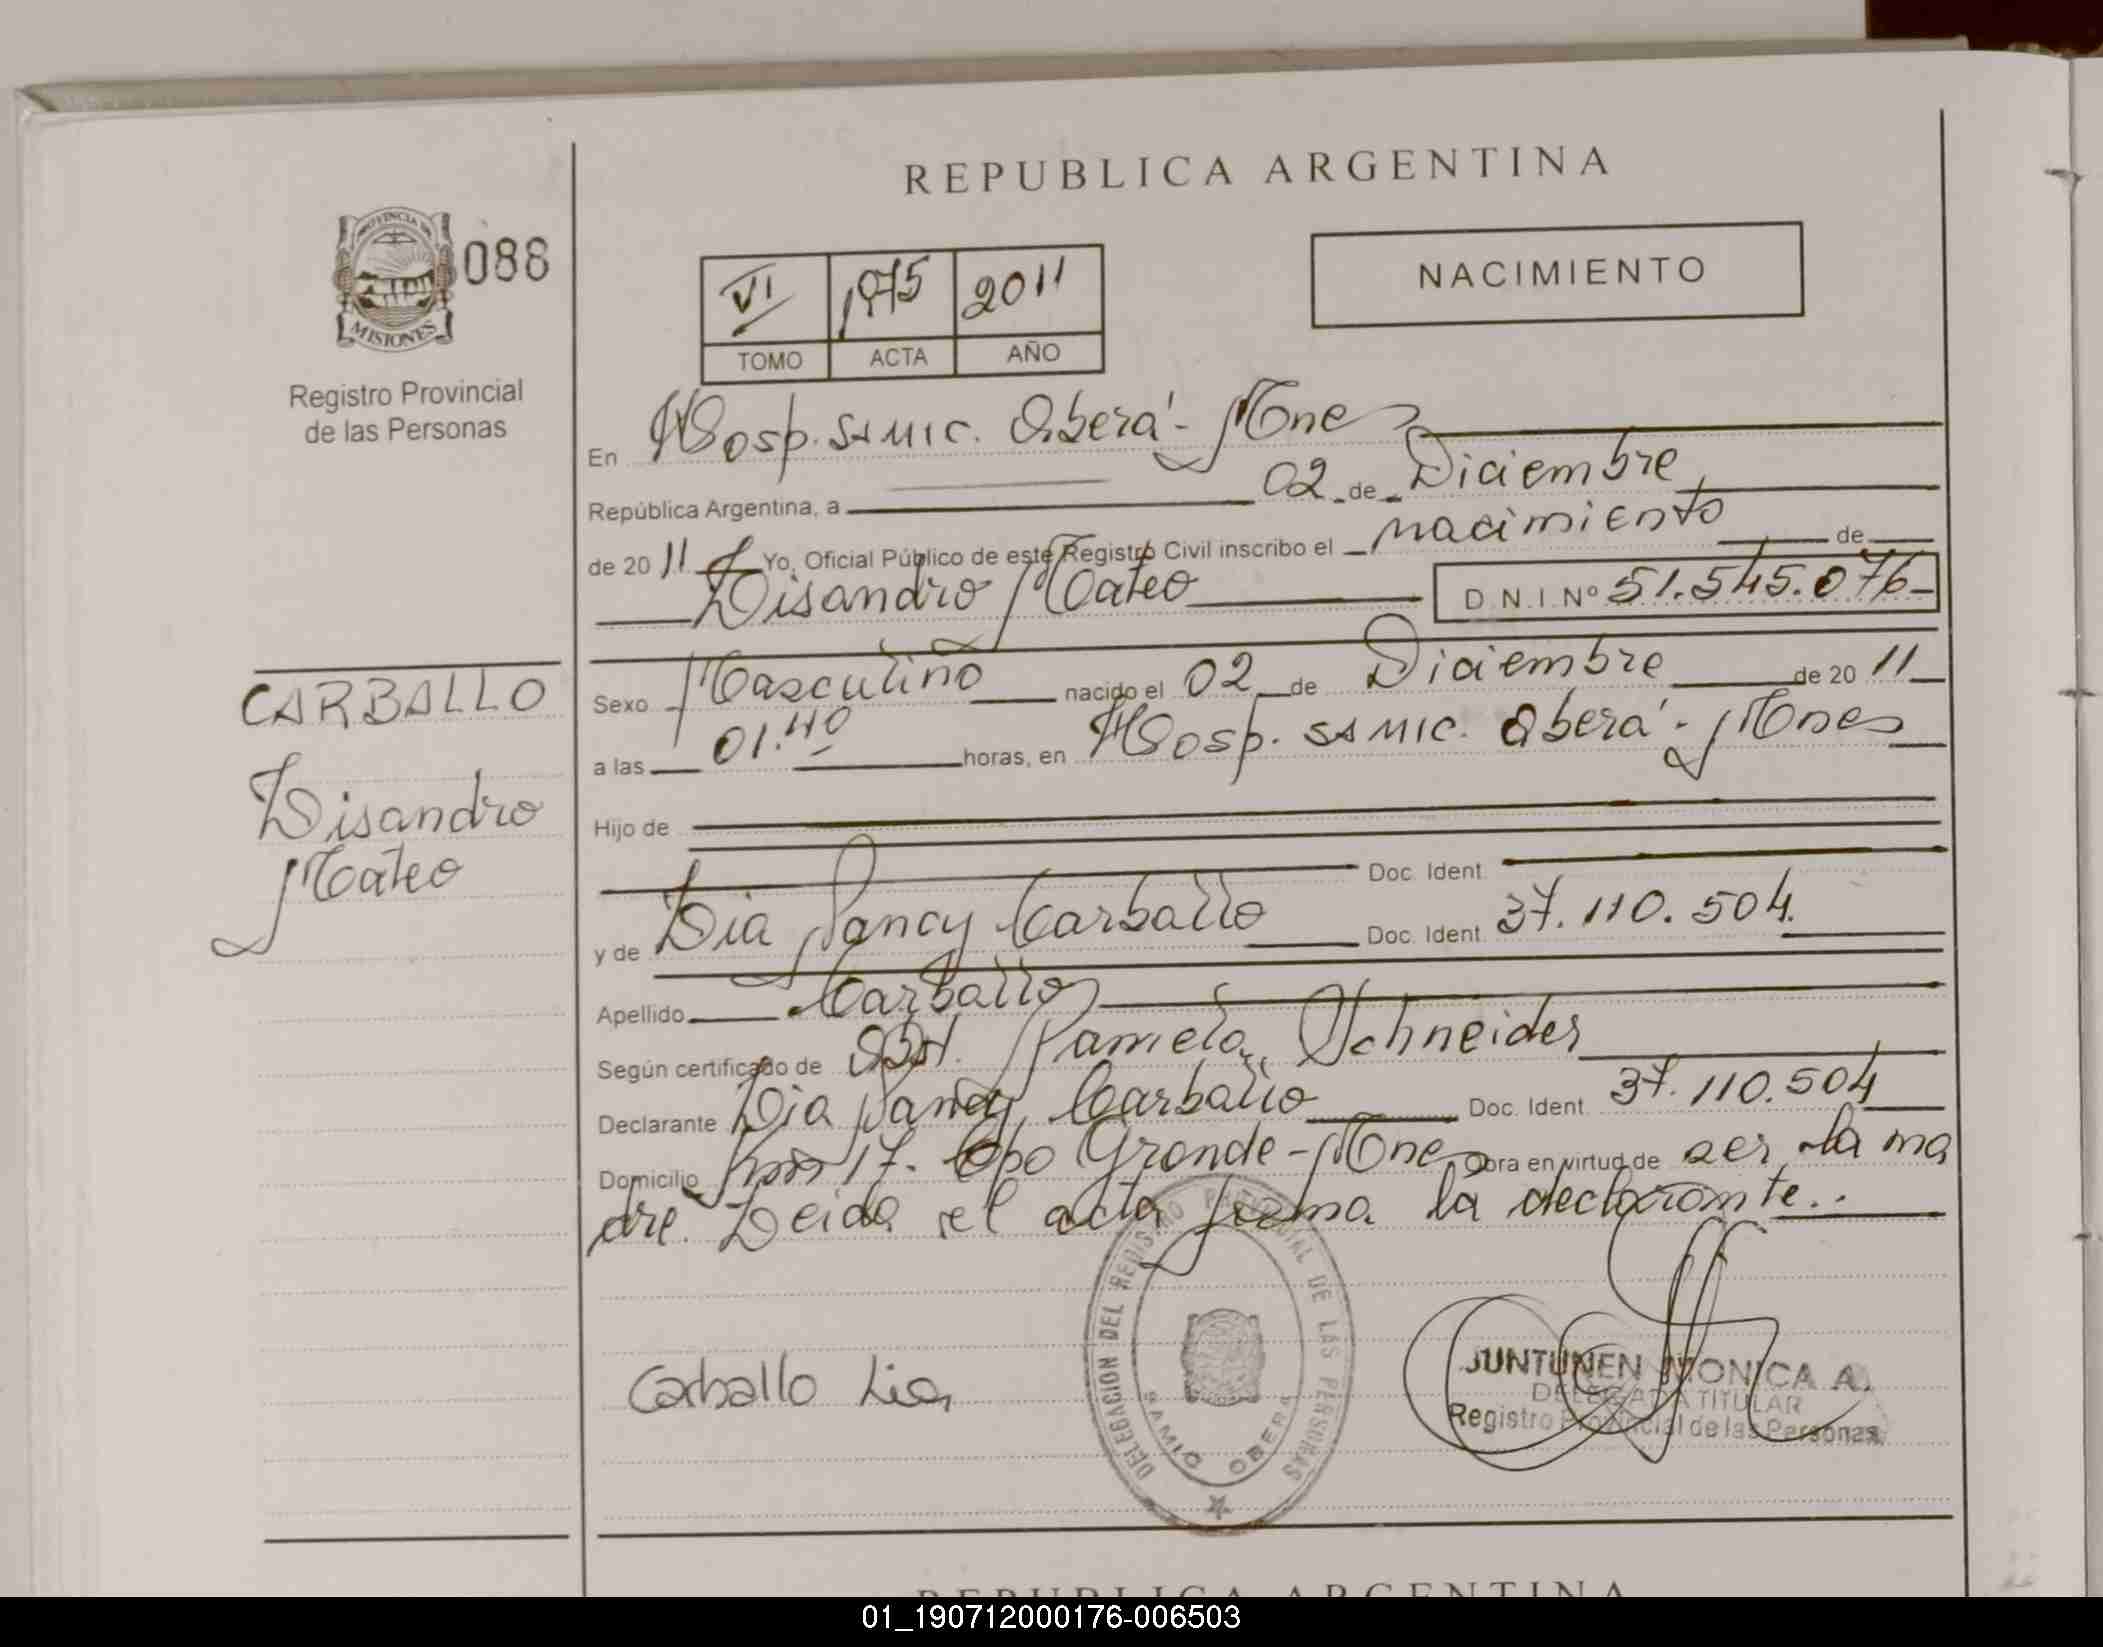 REPUBLICA ARGENTINA
PROVINCIA DE
MISIONES
088
Registro Provincial
de las Personas
VI 1975 2011
TOMO ACTA AÑO
NACIMIENTO
En Hosp. SAMIC. Oberá - Mnes
República Argentina, a 02 de Diciembre
de 2011 Yo, Oficial Público de este Registro Civil inscribo el nacimiento de
Lisandro Mateo D.N.I. Nº 51.545.076
CARBALLO
Lisandro
Mateo
Sexo Masculino nacido el 02 de Diciembre de 2011
a las 01.40 horas, en Hosp. SAMIC. Oberá - Mnes
Hijo de
Doc. Ident.
y de Lia Nancy Carballo Doc. Ident. 37.110.504.
Apellido Carballo
Según certificado de Obst. Pamela Schneider
Declarante Lia Nancy Carballo Doc. Ident. 37.110.504
Domicilio Km 17. Cpo Grande - Mnes Obra en virtud de ser la ma
dre. Leida el acta firma la declarante..
Carballo Lia
DELEGACION DEL REGISTRO PROVINCIAL DE LAS PERSONAS
SAMIC OBERA
JUNTUNEN MONICA A.
DELEGADA TITULAR
Registro Provincial de las Personas
REPUBLICA ARGENTINA
01_190712000176-006503